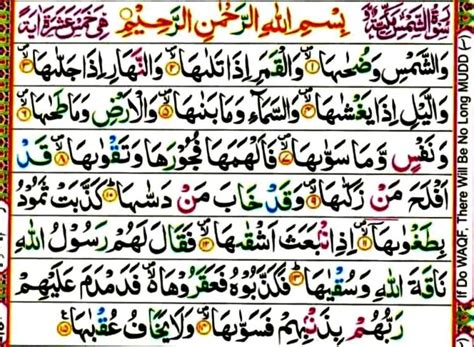 سُوْرَةُ الشَّمْسِ مَكِّيَّةٌ بِسْمِ اللهِ الرَّحْمٰنِ الرَّحِيْمِ هِيَ خَمْسَ عَشْرَةَ اٰيَةً
وَالشَّمْسِ وَضُحٰىهَا ۝١ وَالْقَمَرِ اِذَا تَلٰىهَا ۝٢ وَالنَّهَارِ اِذَا جَلّٰىهَا ۝٣
وَالَّيْلِ اِذَا يَغْشٰىهَا ۝٤ وَالسَّمَآءِ وَمَا بَنٰىهَا ۝٥ وَالْاَرْضِ وَمَا طَحٰىهَا ۝٦
وَنَفْسٍ وَّمَا سَوّٰىهَا ۝٧ فَاَلْهَمَهَا فُجُوْرَهَا وَتَقْوٰىهَا ۝٨ قَدْ
اَفْلَحَ مَنْ زَكّٰىهَا ۝٩ وَقَدْ خَابَ مَنْ دَسّٰىهَا ۝١٠ كَذَّبَتْ ثَمُوْدُ
بِطَغْوٰىهَا ۝١١ اِذِ انْۢبَعَثَ اَشْقٰىهَا ۝١٢ فَقَالَ لَهُمْ رَسُوْلُ اللهِ
نَاقَةَ اللهِ وَسُقْيٰهَا ۝١٣ فَكَذَّبُوْهُ فَعَقَرُوْهَا فَدَمْدَمَ عَلَيْهِمْ
رَبُّهُمْ بِذَنْۢبِهِمْ فَسَوّٰىهَا ۝١٤ وَلَا يَخَافُ عُقْبٰهَا ۝١٥
If Do WAQF, There Will Be No Long MUDD (~)